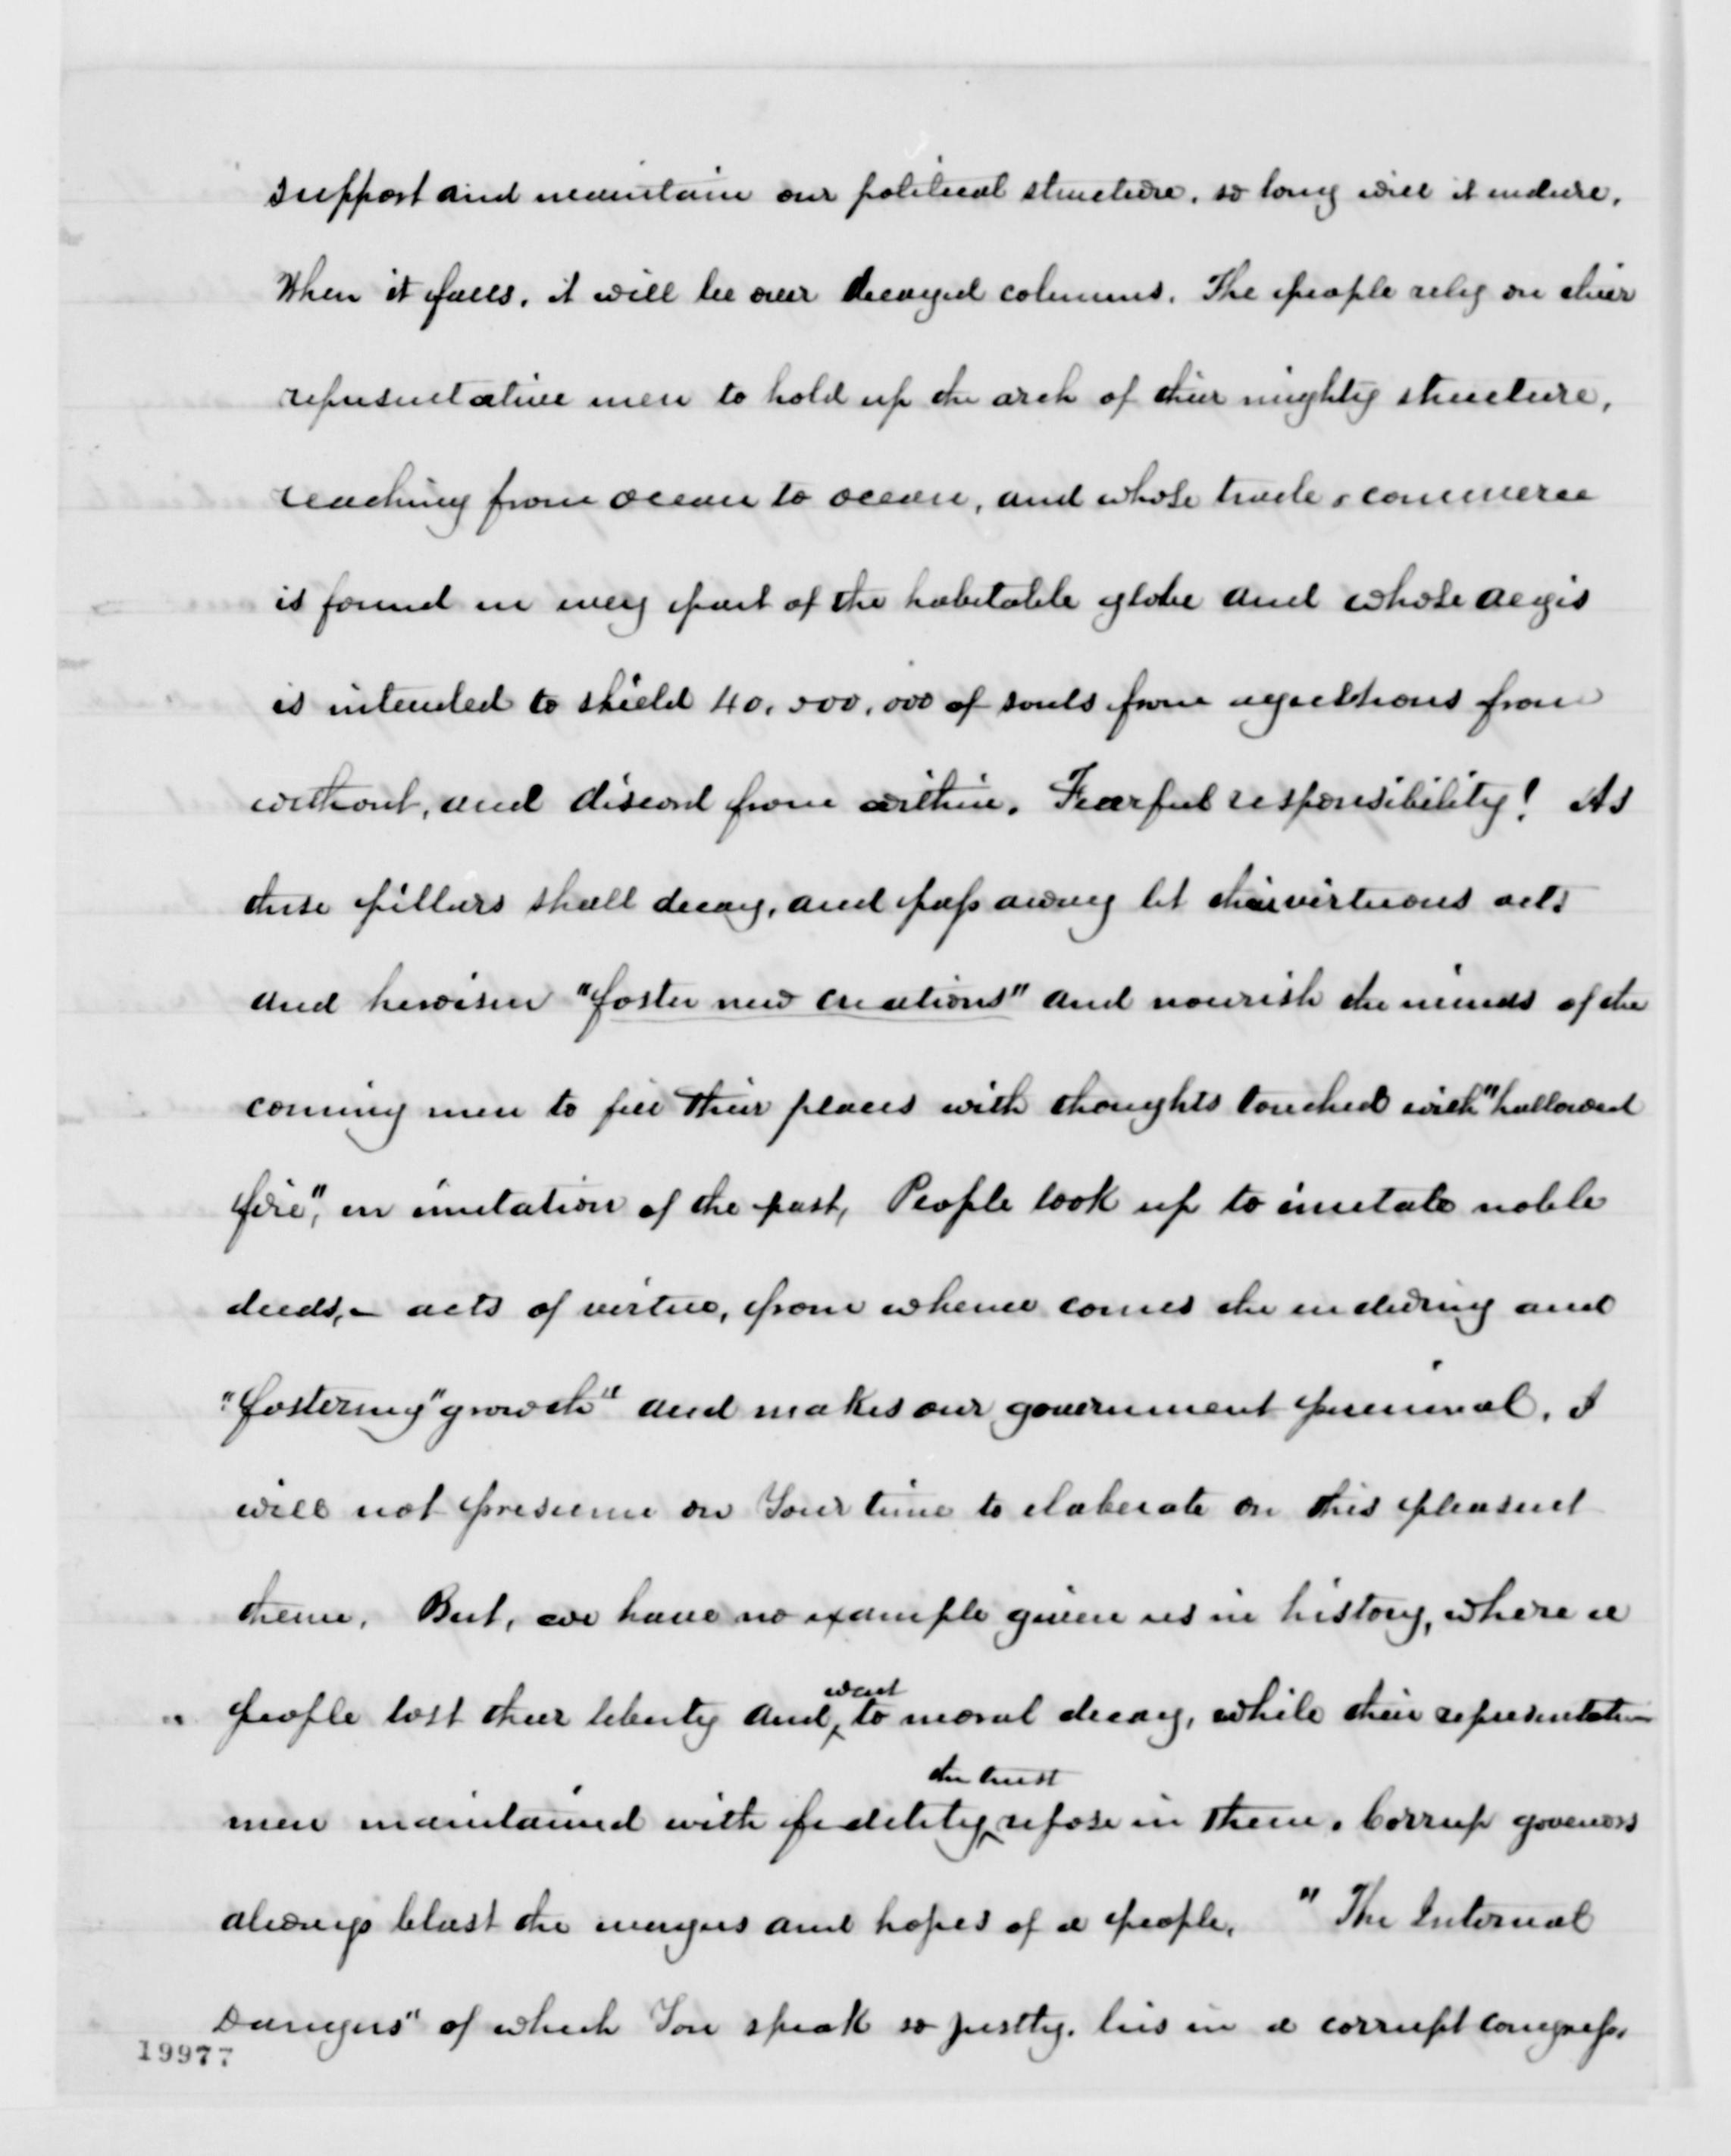 support and maintain our political structure, so long will it endure.
When it falls, it will be over decayed columns. The people rely on their
representative men to hold up the arch of their mighty structure,
reaching from ocean to ocean, and whose trade & commerce
is found in every part of the habitable globe and whose aegis
is intended to shield 40,000,000 of souls from agressions from
without, and discord from within. Fearful responsibility! As
these pillars shall decay, and pass away let their virtuous acts
and heroism "foster new creations" and nourish the minds of the
coming men to fill their places with thoughts touched with "hallowed
fire", in imitation of the past, People look up to imitate noble
deeds, - acts of virtue, from whence comes the enduring and
"fostering "growth" and makes our government perennial. I
will not presume on Your time to elaborate on this pleasent
theme. But, we have no example given us in history, where a
people lost their liberty and went to moral decay, while their representative
men maintained with fidelity the trust repose in them. Corrup goveners
always blast the energies and hopes of a people. "The Internal
Dangers" of which You speak so justly, lies in a corrupt congress.
19977